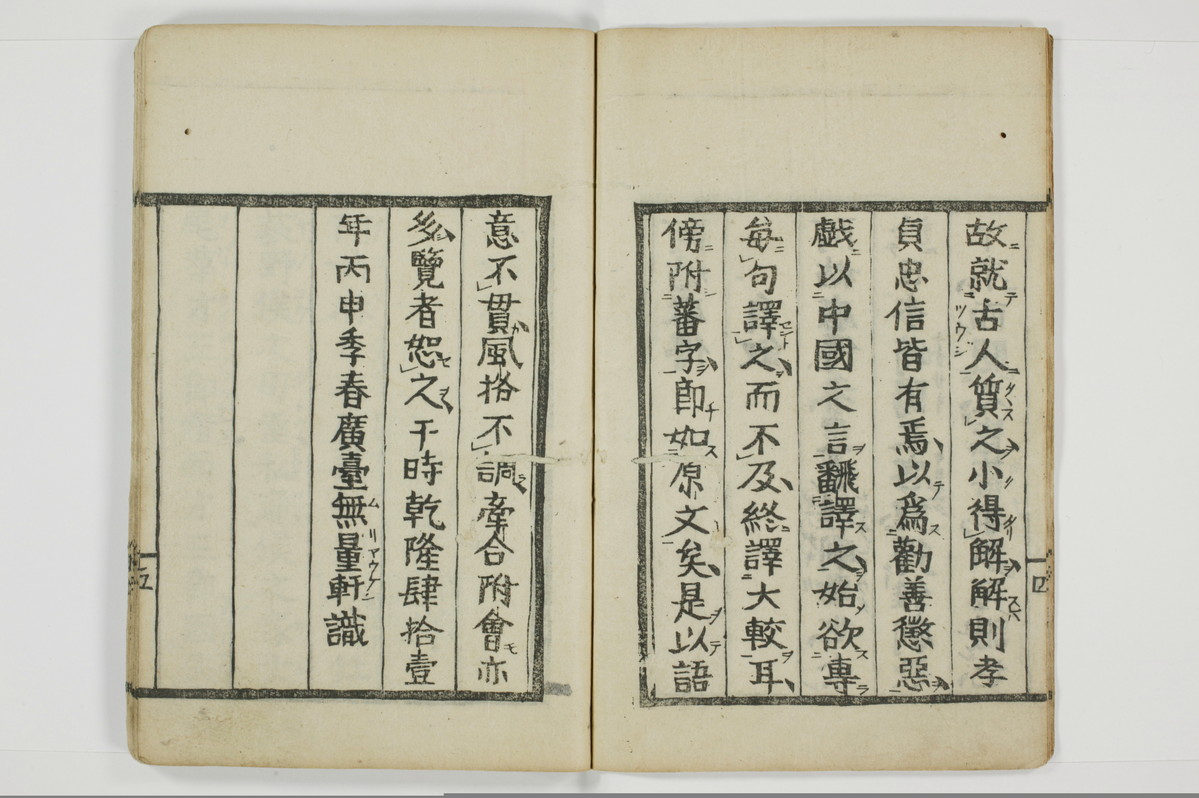 故就古人質之小得解解則孝
貞忠信皆有焉以爲勸善懲惡
戯以中國之言飜譯之始欲專
每句譯之而不及終譯大較耳
傍附蕃字即如原文矣是以語
四
意不貫風格不調牽合附會亦
多覽者恕之干時乾隆肆拾壹
年丙申季春廣臺無量軒識
五